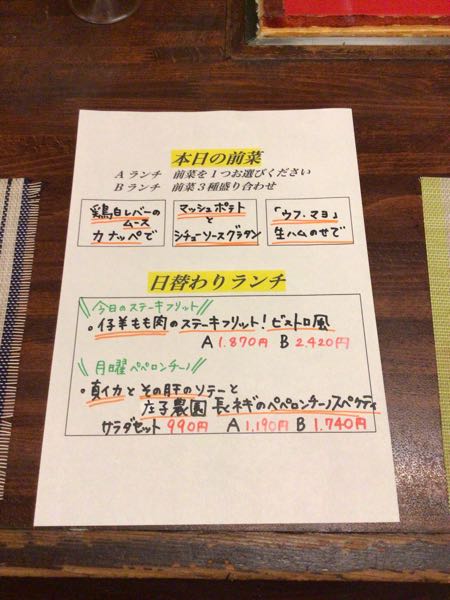 本日の前菜
Aランチ　前菜を１つお選びください
Bランチ　前菜３種盛り合わせ
鶏白レバーの
ムース
カナッペで
マッシュポテト
と
シチューソースグラタン
「ウフ.マヨ」
生ハムのせで
日替わりランチ
今日のステーキフリット
・仔羊もも肉のステーキフリット！ビストロ風
A 1.870円　B 2.420円
月曜ペペロンチーノ
・真イカとその肝のソテーと
庄子農園 長ネギのペペロンチーノスペゲティ
サラダセット 990円　A 1.190円　B 1.740円